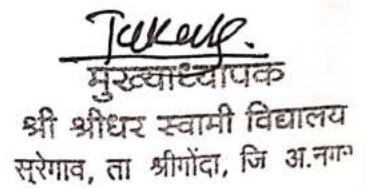 मुख्याध्यापक
श्री श्रीधर स्वामी विद्यालय
सुरेगाव, ता श्रीगोंदा, जि अ.नगर